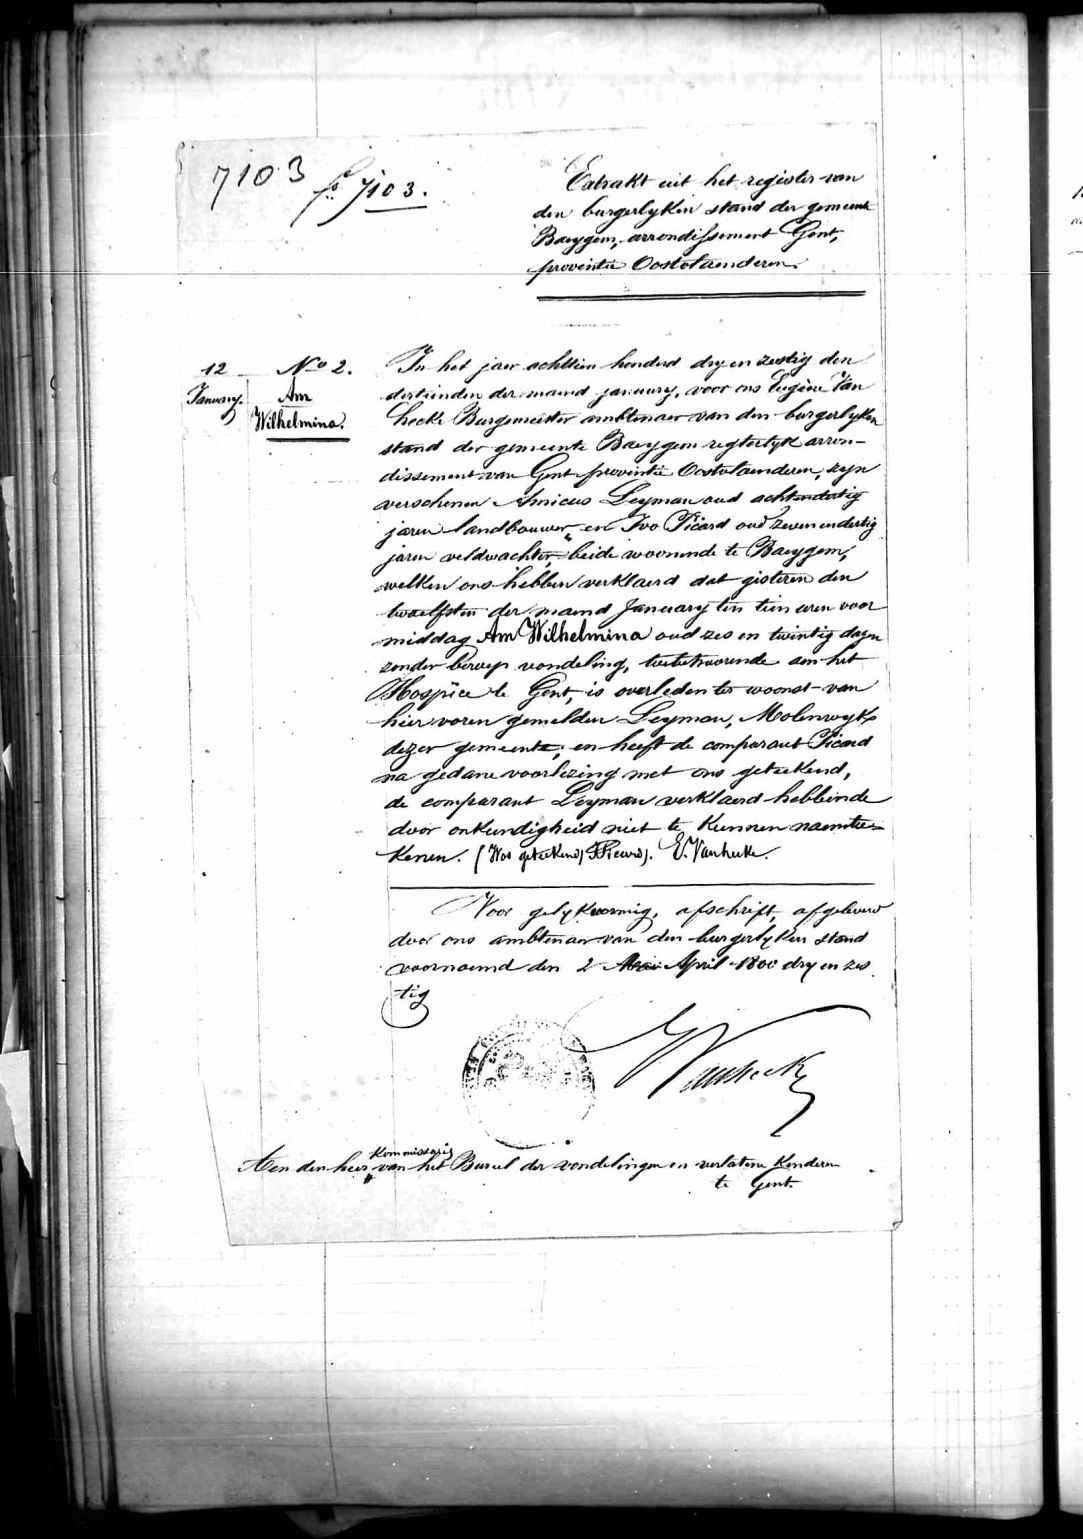 7103 fo 7103.
Extrakt uit het register van
den burgerlyken stand der gemeente
Baeygem, arrondissement Gent,
provintie Oostvlaenderen.
12 January. No 2. Am Wilhelmina.
In het jaer achttien honderd dry en zestig den
dertienden der maend january, voor ons Eugène Van
hecke Burgemeester ambtenaer van den burgerlyken
stand der gemeente Baeygem regterlyk arron-
dissement van Gent provintie Oostvlaenderen, zyn
verschenen Amicus Leyman oud achtendertig
jaren landbouwer en Ivo Picard oud zevenendertig
jaren veldwachter, beide woonende te Baeygem,
welken ons hebben verklaerd dat gisteren den
twaelfsten der maend January ten tien uren voor
middag Am Wilhelmina oud zes en twintig dagen
zonder beroep vondeling, toebehoorende aen het
Hospice te Gent, is overleden ter woonst van
hier voren gemelden Leyman, Molenwyk
dezer gemeente, en heeft de comparant Picard
na gedane voorlezing met ons geteekend,
de comparant Leyman verklaerd hebbende
door onkundigheid niet te kunnen naemtee-
kenen. (Was geteekend) I. Picard). E. Vanhecke.
Voor gelykvormig afschrift, afgeleverd
door ons ambtenaer van den burgerlyken stand
voornoemd den 2 April 1800 dry en zes
tig
EVanhecke
Aen den heer kommissaris van het Bureel der vondelingen en verlatene kinderen
te Gent.